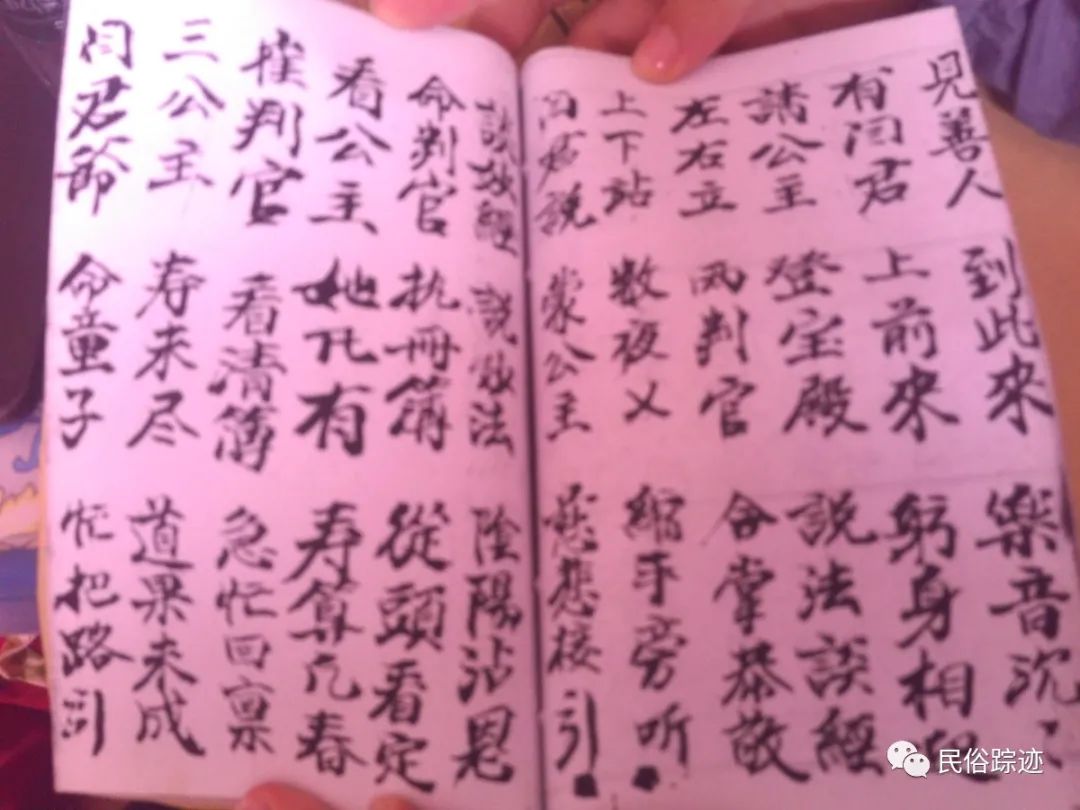 見善人 到此來 樂音沉、
有闫君 上前來 躬身相
請公主 登宝殿 説法談經
左右立 两判官 合掌恭敬
上下站 数夜乂 縮手旁听
闫君說 蒙公主 慈悲接引
談經 說法 陰陽沾恩
命判官 执冊簿 從頭看定
看公主 她凡有 寿算几春
崔判官 看清簿 急忙回禀
三公主 寿未尽 道果未成
闫君爺 命童子 忙把路引
民俗踪迹